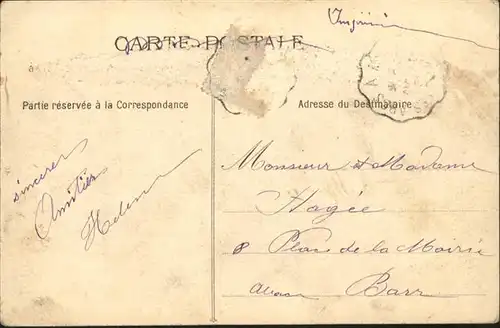 Imprimé
CARTE POSTALE
à
Partie réservée à la Correspondance
Adresse du Destinataire
sincères
Amitiés
Monsieur et Madame
Hagée
8 Place de la Mairie
Alsace Barr